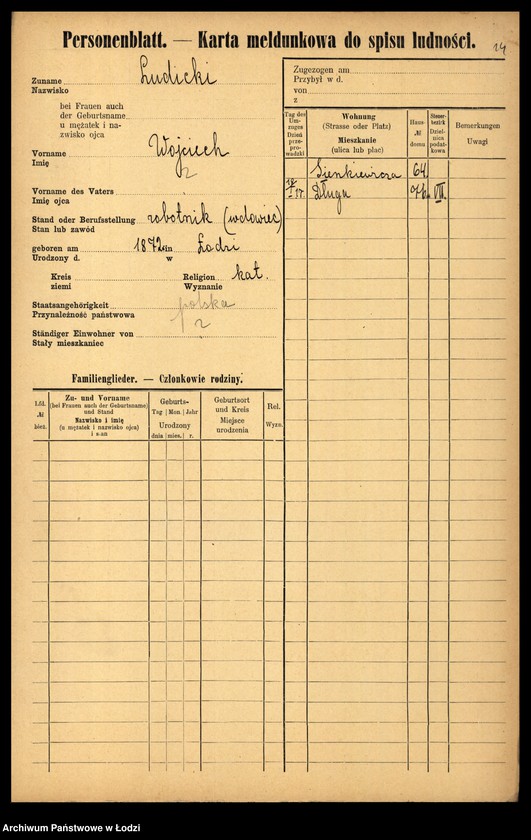 Personenblatt. — Karta meldunkowa do spisu ludności.
14
Zuname Ludicki
Nazwisko
bei Frauen auch
der Geburtsname
u mężatek i na-
zwisko ojca
Vorname Wojciech
Imię
2
Vorname des Vaters
Imię ojca
Stand oder Berufsstellung robotnik (wdowiec)
Stan lub zawód
geboren am 1872 in Łodzi
Urodzony d. w
Kreis Religion kat.
ziemi Wyznanie
Staatsangehörigkeit polska
Przynależność państwowa 2
Ständiger Einwohner von
Stały mieszkaniec
Familienglieder. — Członkowie rodziny.
Lfd. № bież.
Zu- und Vorname
(bei Frauen auch der Geburtsname)
und Stand
Nazwisko i imię
(u mężatek i nazwisko ojca)
i stan
Geburts-
Tag Mon. Jahr
Urodzony
dnia mies. r.
Geburtsort
und Kreis
Miejsce
urodzenia
Rel.
Wyzn.
Zugezogen am
Przybył w d.
von
z
Tag des
Um-
zuges
Dzień
prze-
prowadzki
Wohnung
(Strasse oder Platz)
Mieszkanie
(ulica lub plac)
Haus-
№
domu
Steuer-
bezirk
Dziel-
nica
podat-
kowa
Bemerkungen
Uwagi
Sienkiewicza 64.
18/I 17. Długa 76. VII.
Archiwum Państwowe w Łodzi